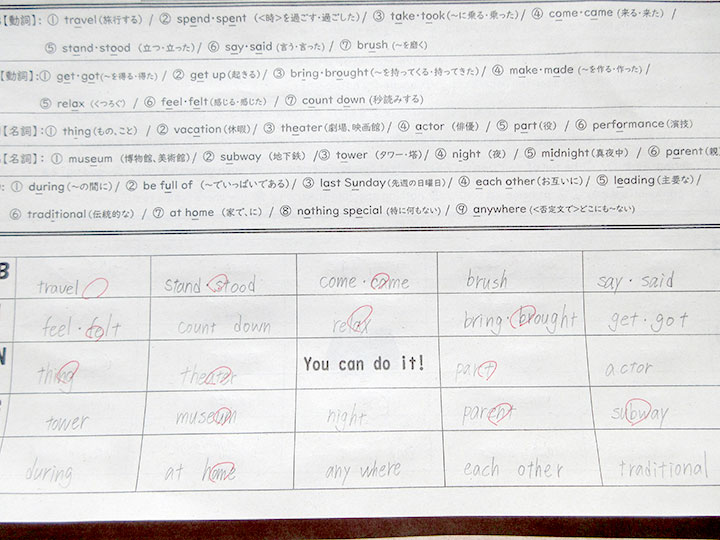 【動詞】: ① travel(旅行する) / ② spend・spent (<時>を過ごす・過ごした) / ③ take・took(~に乗る・乗った) / ④ come・came (来る・来た) /
⑤ stand・stood (立つ・立った) / ⑥ say・said (言う・言った) / ⑦ brush (~を磨く)
【動詞】: ① get・got(~を得る・得た) / ② get up(起きる) / ③ bring・brought(~を持ってくる・持ってきた) / ④ make・made (~を作る・作った) /
⑤ relax (くつろぐ) / ⑥ feel・felt(感じる・感じた) / ⑦ count down (秒読みする)
【名詞】: ① thing(もの、こと) / ② vacation(休暇) / ③ theater(劇場、映画館) / ④ actor (俳優) / ⑤ part(役) / ⑥ performance(演技)
【名詞】: ① museum (博物館、美術館) / ② subway (地下鉄) /③ tower (タワー・塔) / ④ night (夜) / ⑤ midnight(真夜中) / ⑥ parent(親
: ① during(~の間に) / ② be full of (~でいっぱいである) / ③ last Sunday(先週の日曜日) / ④ each other(お互いに) / ⑤ leading(主要な) /
⑥ traditional(伝統的な) / ⑦ at home (家で、に) / ⑧ nothing special(特に何もない) / ⑨ anywhere(<否定文で>どこにも~ない)
B travel stand・stood come・came brush say・said
feel・felt count down relax bring・brought get・got
N thing theater You can do it! part actor
tower museum night parent subway
during at home any where each other traditional